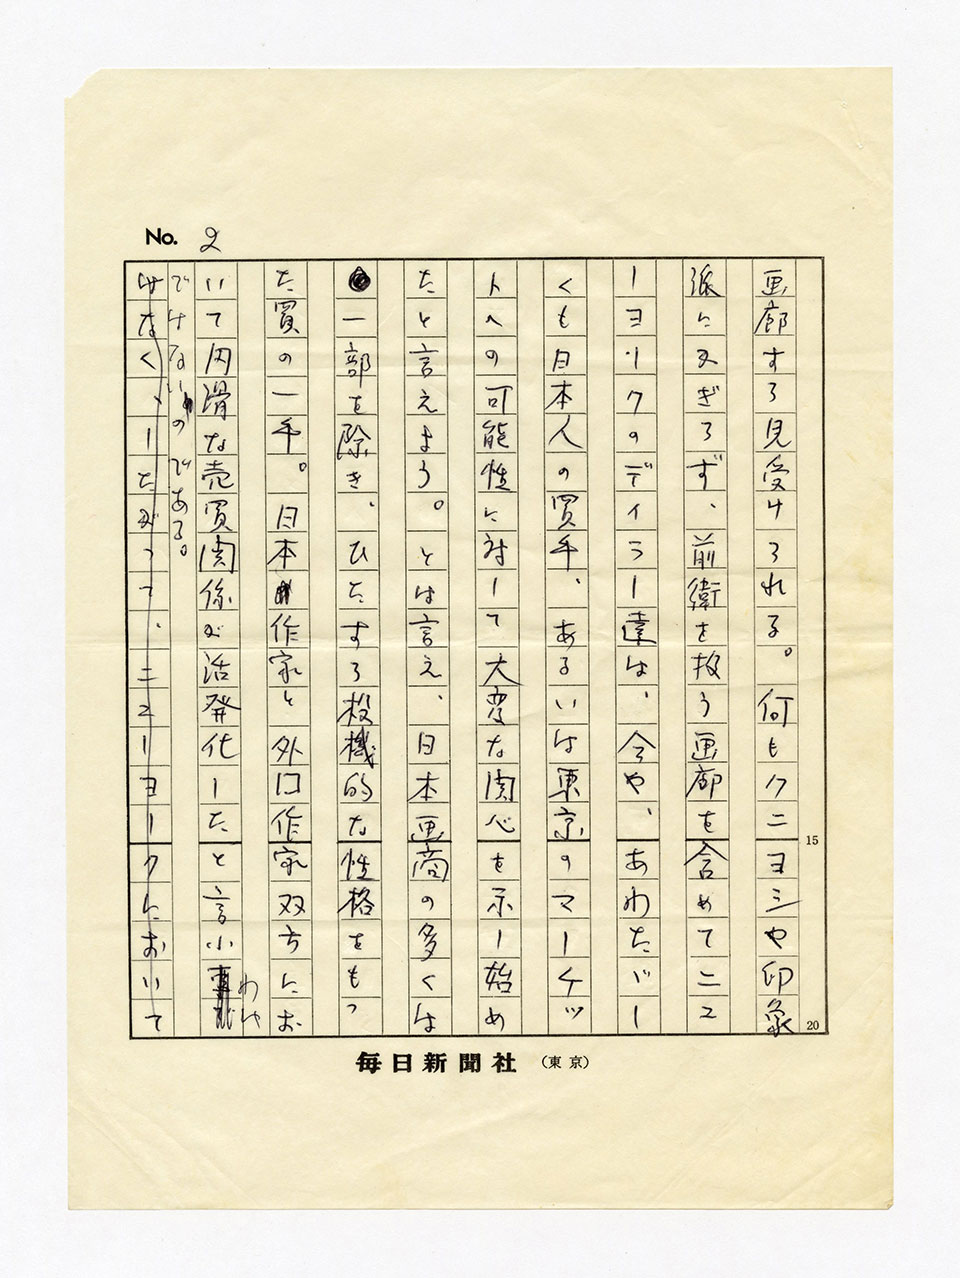 No. 2
画廊すら見受けられる。何もクニヨシや印象
派にかぎらず、前衛を扱う画廊を含めてニュ
ーヨークのディラー達は、今や、あわただし
くも日本人の買手、あるいは東京のマーケッ
トへの可能性に対して大変な関心を示し始め
たと言えよう。とは言え、日本画商の多くは
一部を除き、ひたすら投機的な性格をもっ
た買の一手。日本作家と外国作家双方にお
いて円滑な売買関係が活発化したと言うわけ
ではないのである。
はなく、したがって、ニューヨークにおいて
15
20
毎日新聞社 （東京）